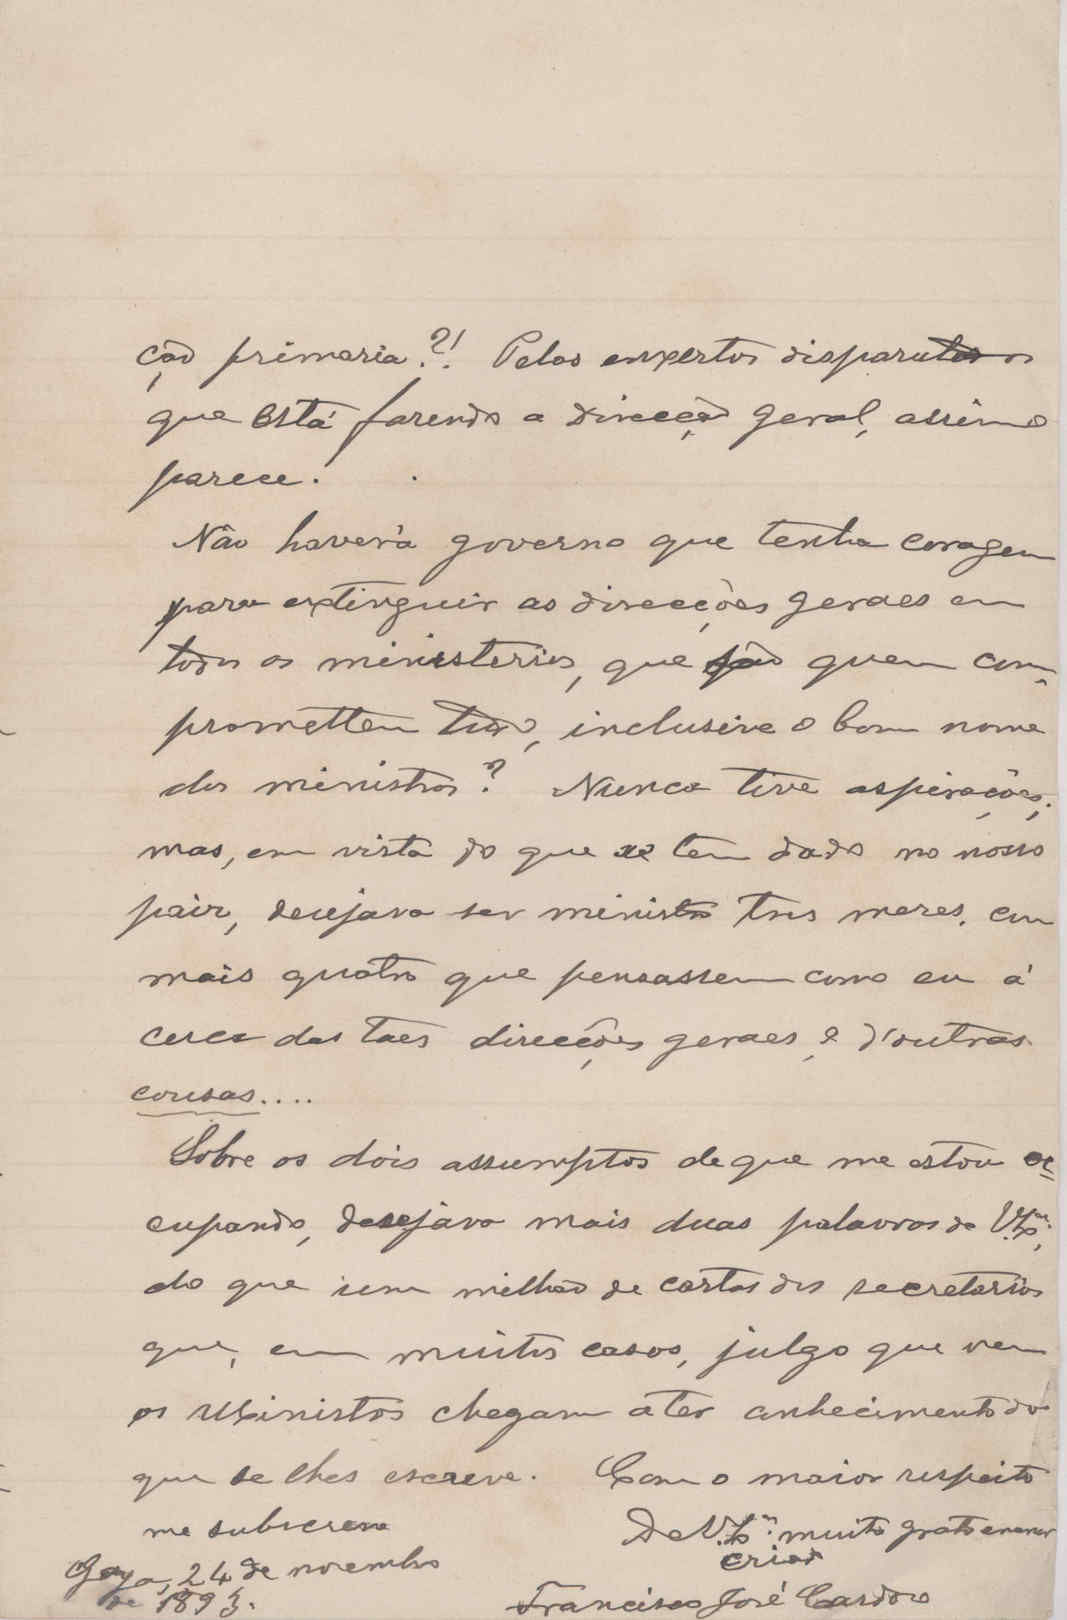 ção primaria?! Pelos expertos disparates
que está fazendo a Direcção Geral, assim o
parece.
Não haverá governo que tenha coragem
para extinguir as direcções geraes em
todos os ministerios, que são quem com-
promettem tudo, inclusive o bom nome
dos ministros? Nunca tive aspirações;
mas, em vista do que se tem dado no nosso
paiz, desejava ser ministro tres mezes, com
mais quatro que pensassem como eu á
cerca das taes direcções geraes, e d'outras
cousas....
Sobre os dois assumptos de que me estou oc-
cupando, desejava mais duas palavras de V. Exª,
do que um milhão de cartas dos secretarios
que, em muitos casos, julgo que nem
os Ministros chegam a ter conhecimento do
que se lhes escreve. Com o maior respeito
me subscrevo
De V. Exª muito grato venor
criado
Gaya, 24 de novembro
de 1893.
Francisco José Cardoso